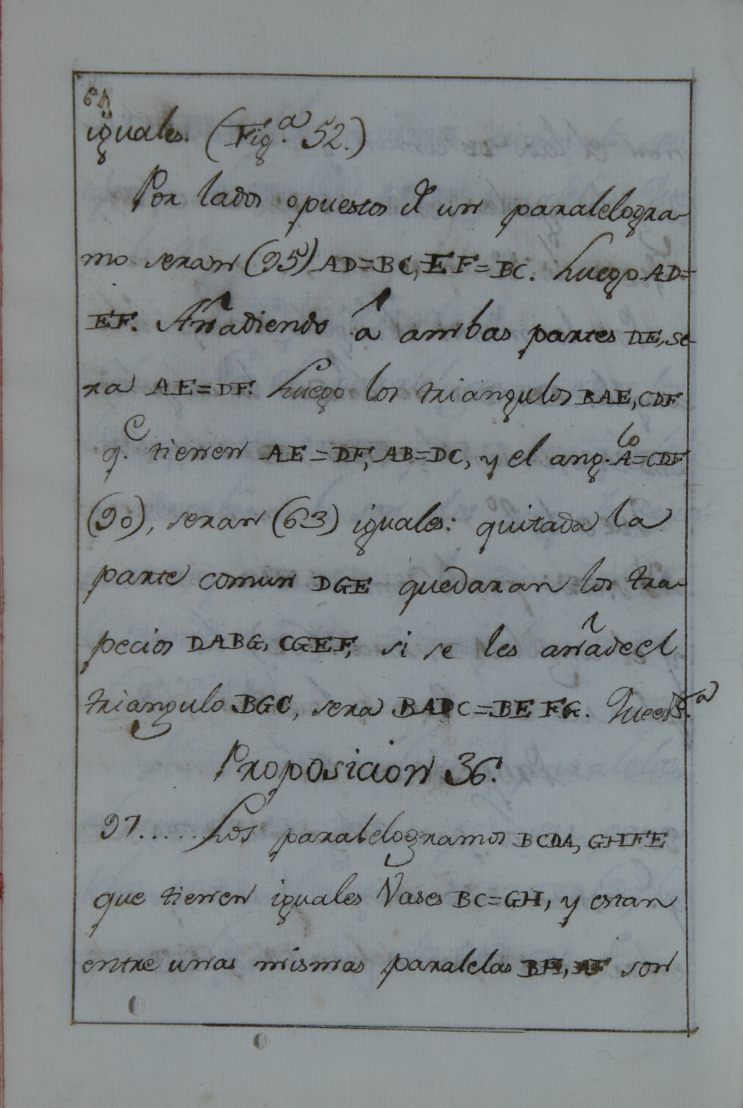 64
iguales. (Fig.ª 52.)
Por lados opuestos de un paralelogra
mo seran (95) AD=BC, EF=BC. Luego AD=
EF. Añadiendo á ambas partes DE, se
ra AE=DF. Luego los triangulos BAE, CDF
q.e tienen AE=DF, AB=DC, y el ang.lo A=CDF
(90), seran (63) iguales: quitada la
parte comun DGE quedaran los tra
pecios DABG, CGEF, si se les añade el
triangulo BGC, sera BADC=BEFG.
Proposicion 36.
97.... Los paralelogramos BCDA, GHFE
que tienen iguales Vases BC=GH, y estan
entre unas mismas paralelas BH, AF son